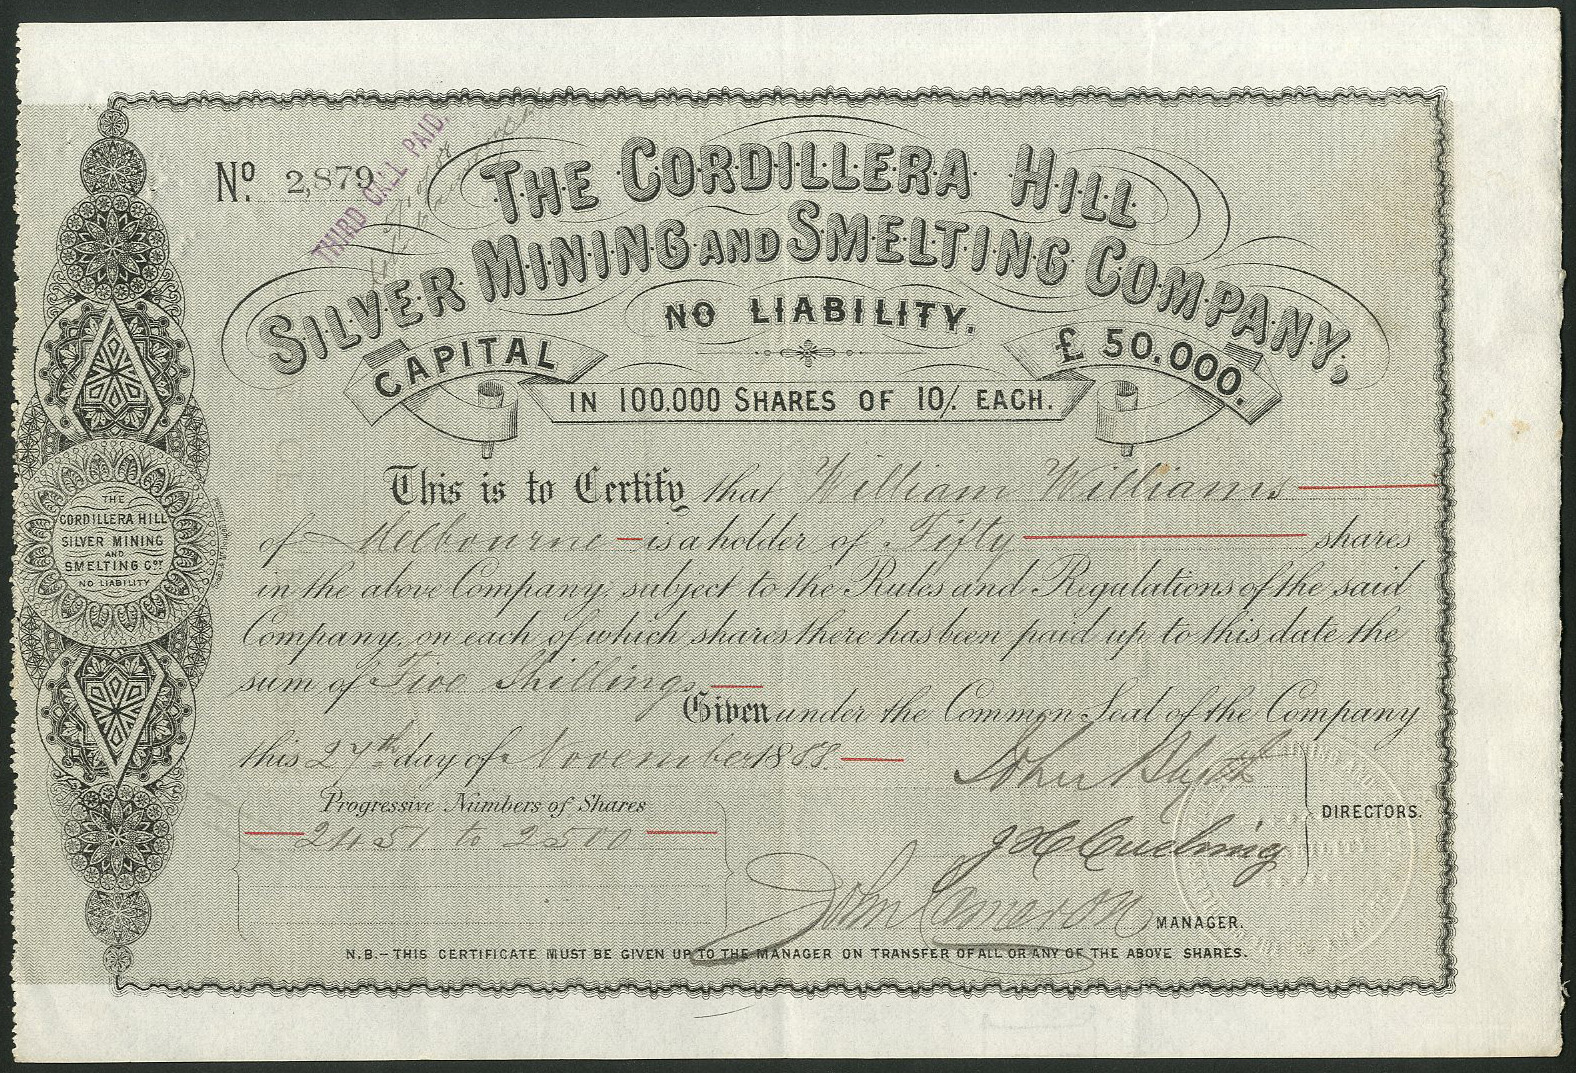 No. 2,879
THIRD CALL PAID.
THE CORDILLERA HILL
SILVER MINING AND SMELTING COMPANY,
NO LIABILITY.
CAPITAL £ 50.000.
IN 100.000 SHARES OF 10/. EACH.
This is to Certify that William Williams
of Melbourne is a holder of Fifty shares
in the above Company, subject to the Rules and Regulations of the said
Company, on each of which shares there has been paid up to this date the
sum of Five Shillings
Given under the Common Seal of the Company
this 27th day of November 1888.
Progressive Numbers of Shares
2451 to 2500
John Blyth
J H Cuching
DIRECTORS.
John Cameron MANAGER.
N.B.- THIS CERTIFICATE MUST BE GIVEN UP TO THE MANAGER ON TRANSFER OF ALL OR ANY OF THE ABOVE SHARES.
THE
CORDILLERA HILL
SILVER MINING
AND
SMELTING COY
NO LIABILITY